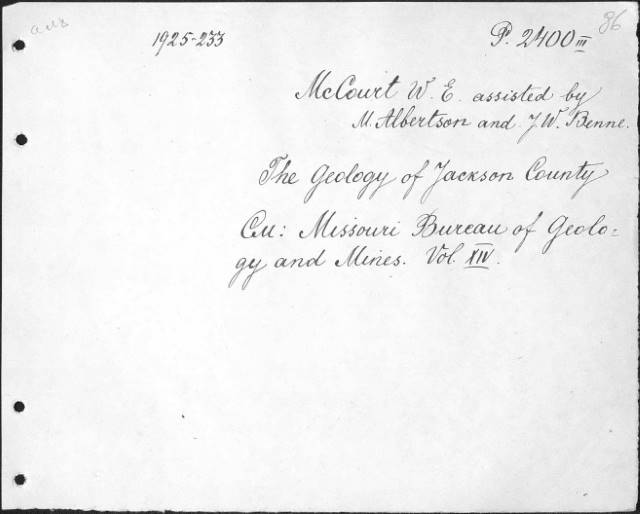 86
1925-233 P. 2400 III
McCourt W. E. assisted by
M. Albertson and J. W. Benne.
The Geology of Jackson County
См: Missouri Bureau of Geolo-
gy and Mines. Vol. XIV.